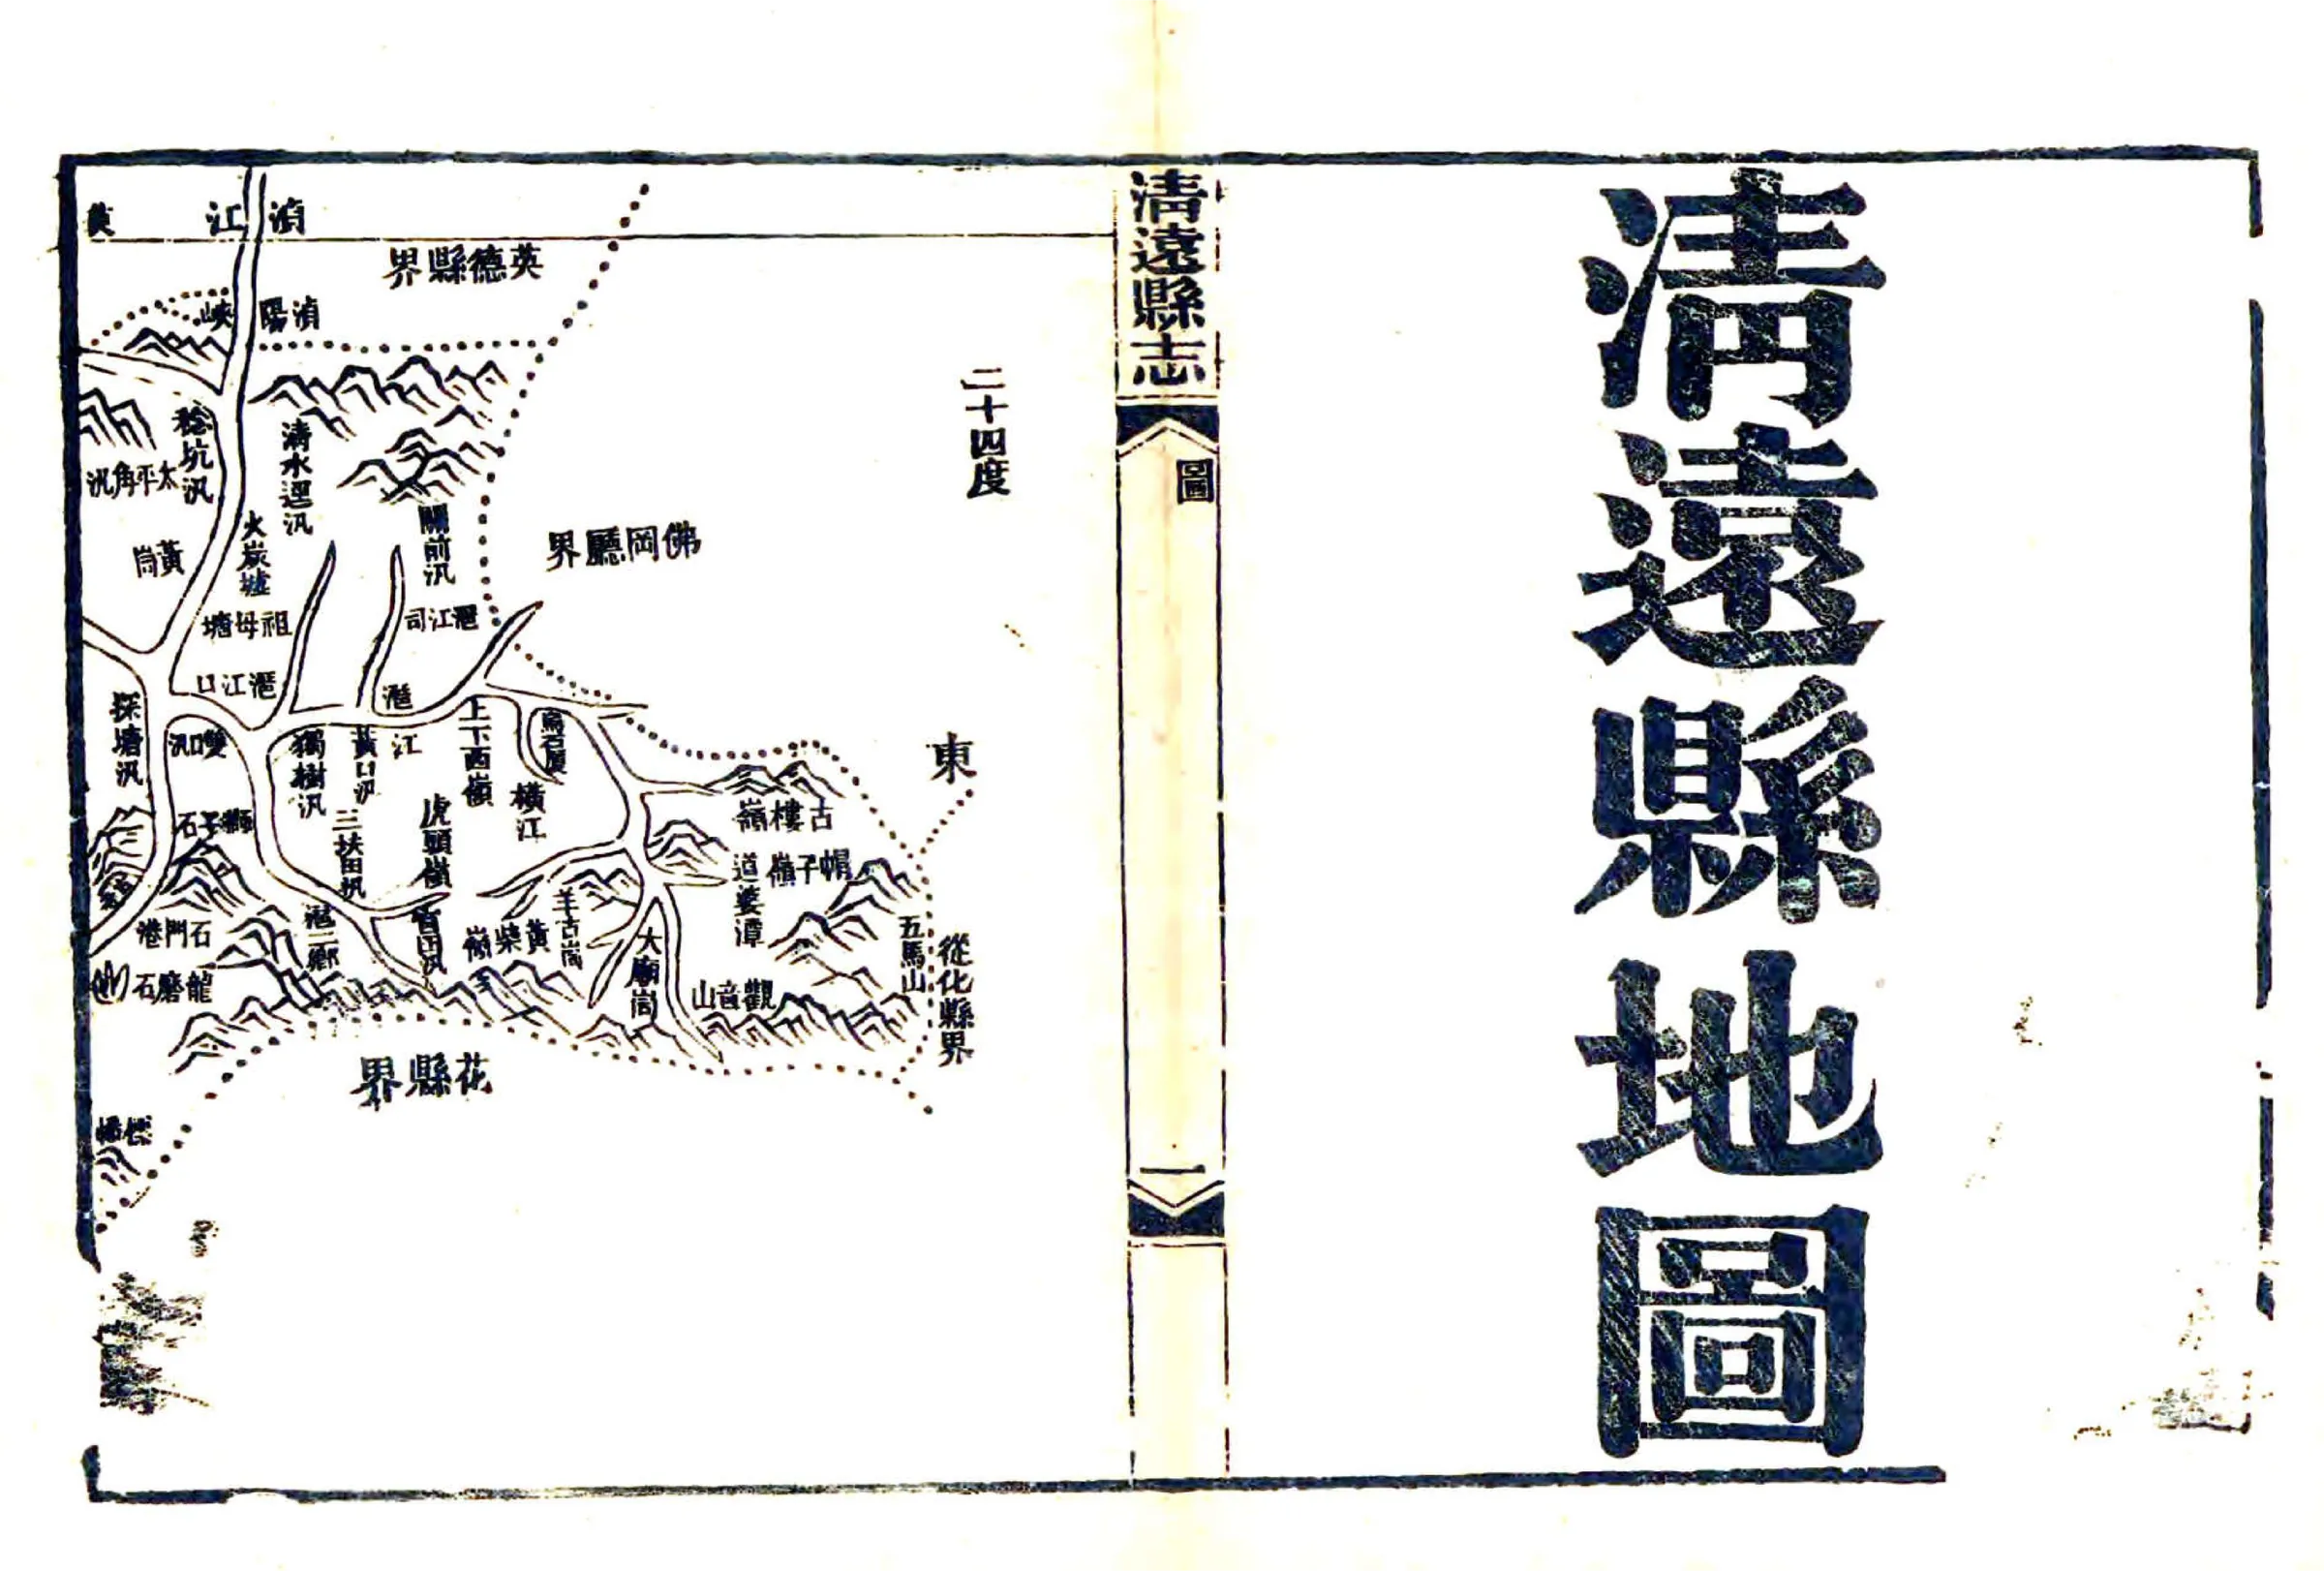 清遠縣地圖
清遠縣志
圖
一
二十四度
東
從化縣界
湞江
英德縣界
湞陽峽
佛岡廳界
清水逕汛
關前汛
稔坑汛
太平角汛
黃崗
火炭墟
祖母塘
潖江司
潖江口
潖江
探塘汛
雙口汛
獨樹汛
黃口汛
上下西嶺
烏石厦
橫江
虎頭嶺
三扶田汛
獅子石
古樓嶺
帽子嶺
道婆潭
五馬山
羊古崗
黃柴嶺
大廟崗
觀音山
潖二鄉
石門港
龍磨石
花縣界